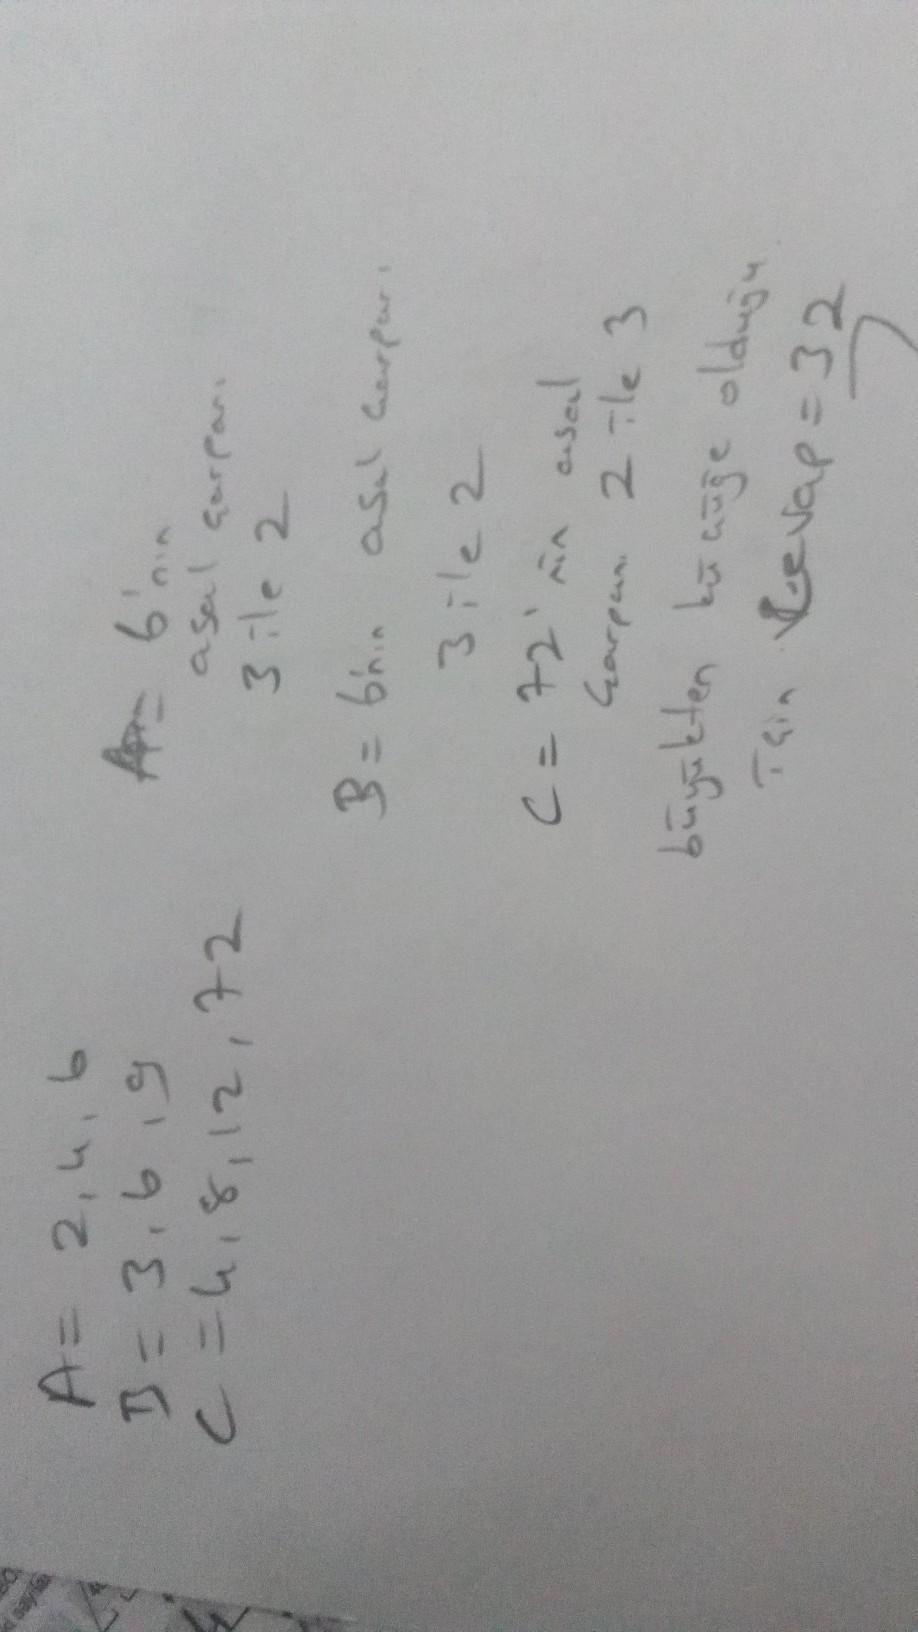 A= 2, 4, 6
B= 3, 6, 9
C= 4, 8, 12, 72
A= 6'nın
asal çarpanı
3 ile 2
B= 6'nın asal çarpanı
3 ile 2
C= 72'nin asal
çarpanı 2 ile 3
büyükten küçüğe olduğu
için Cevap=32